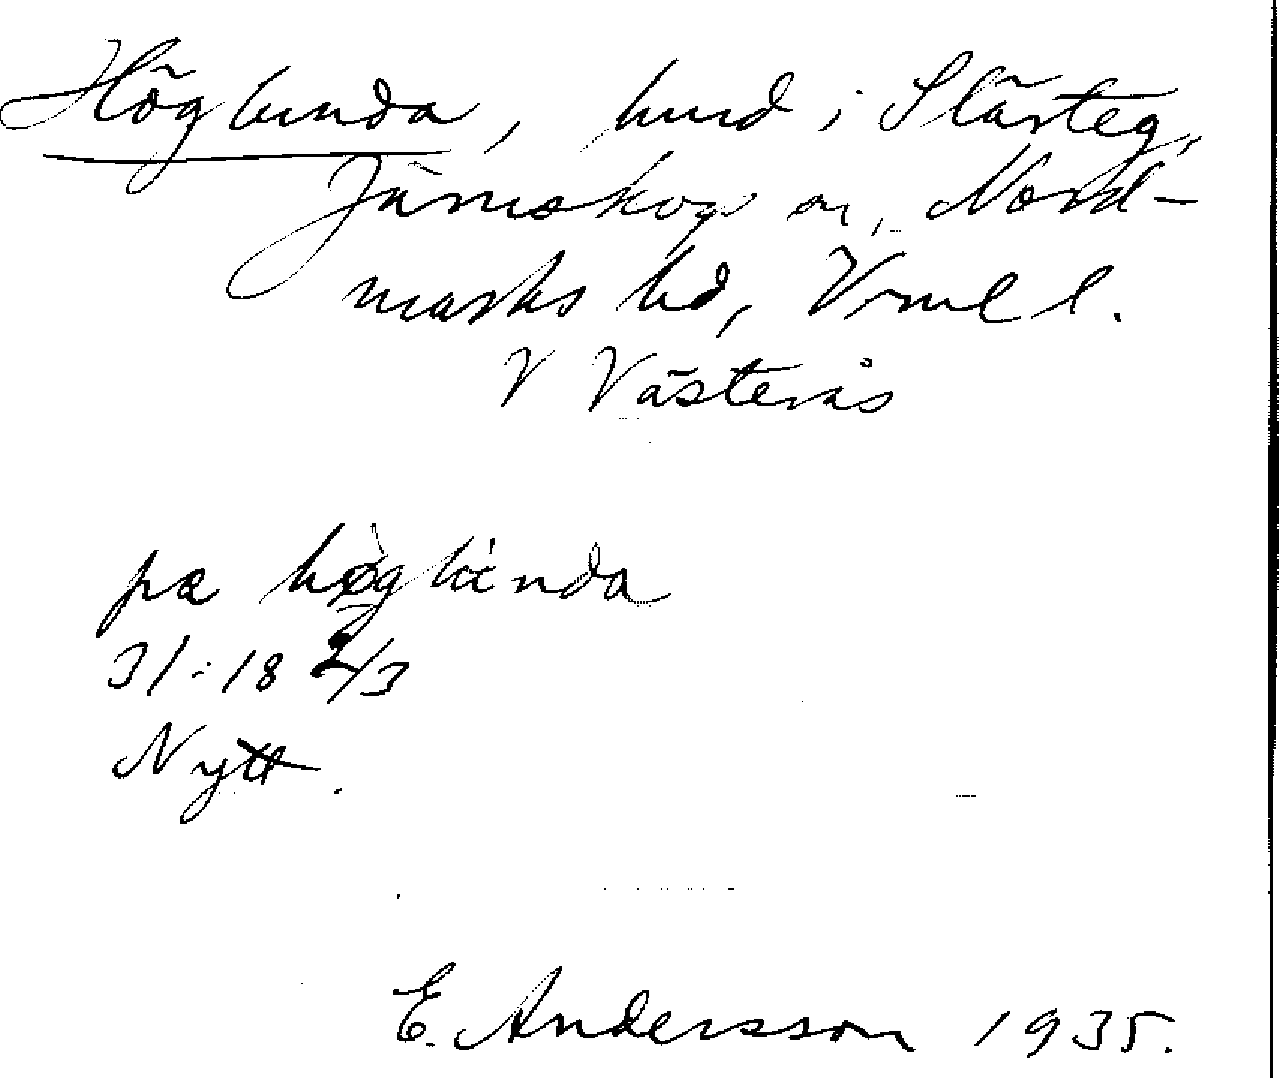 Höglunda, hmd i Slärteg,
Järnskogs sn, Nord-
marks hd, Vrml l.
V Västerås
pæ høglúnda
31:18 2/3
Nytt.
E. Andersson 1935.